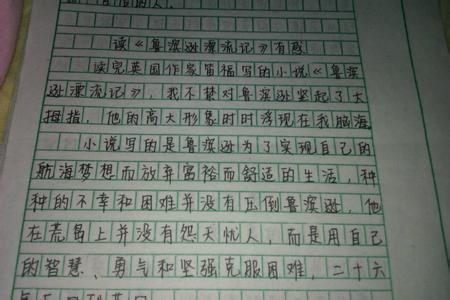 读《鲁滨逊漂流记》有感
读完英国作家笛福写的小说《鲁滨
逊漂流记》，我不禁对鲁滨逊竖起了大
拇指，他的高大形象时时浮现在我脑海
小说写的是鲁滨逊为了实现自己的
航海梦想而放弃富裕而舒适的生活，种
种的不幸和困难并没有压倒鲁滨逊，他
在荒岛上并没有怨天忧人，而是用自己
的智慧、勇气和坚强克服困难，二十六